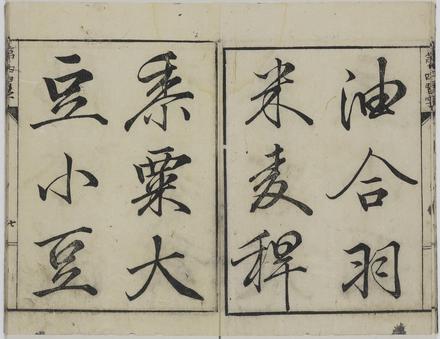 油合羽
米麦稗
黍粟大
豆小豆
七